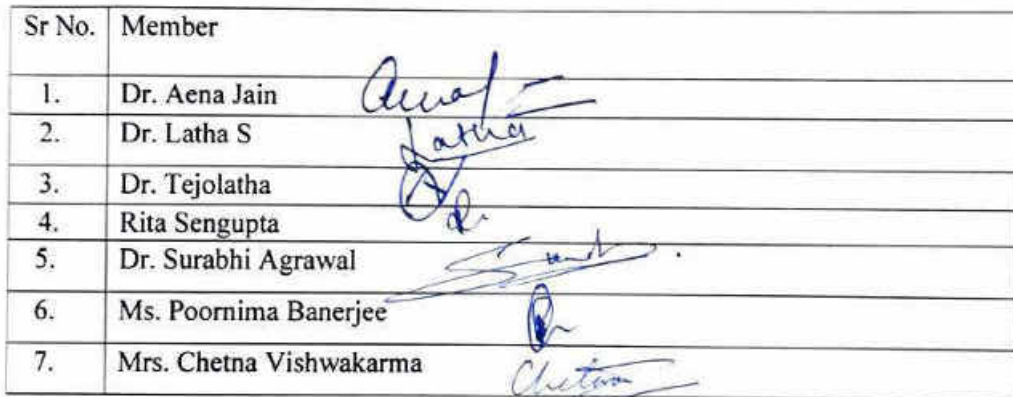 Sr No. Member
1. Dr. Aena Jain
2. Dr. Latha S Latha
3. Dr. Tejolatha
4. Rita Sengupta
5. Dr. Surabhi Agrawal
6. Ms. Poornima Banerjee
7. Mrs. Chetna Vishwakarma Chetna